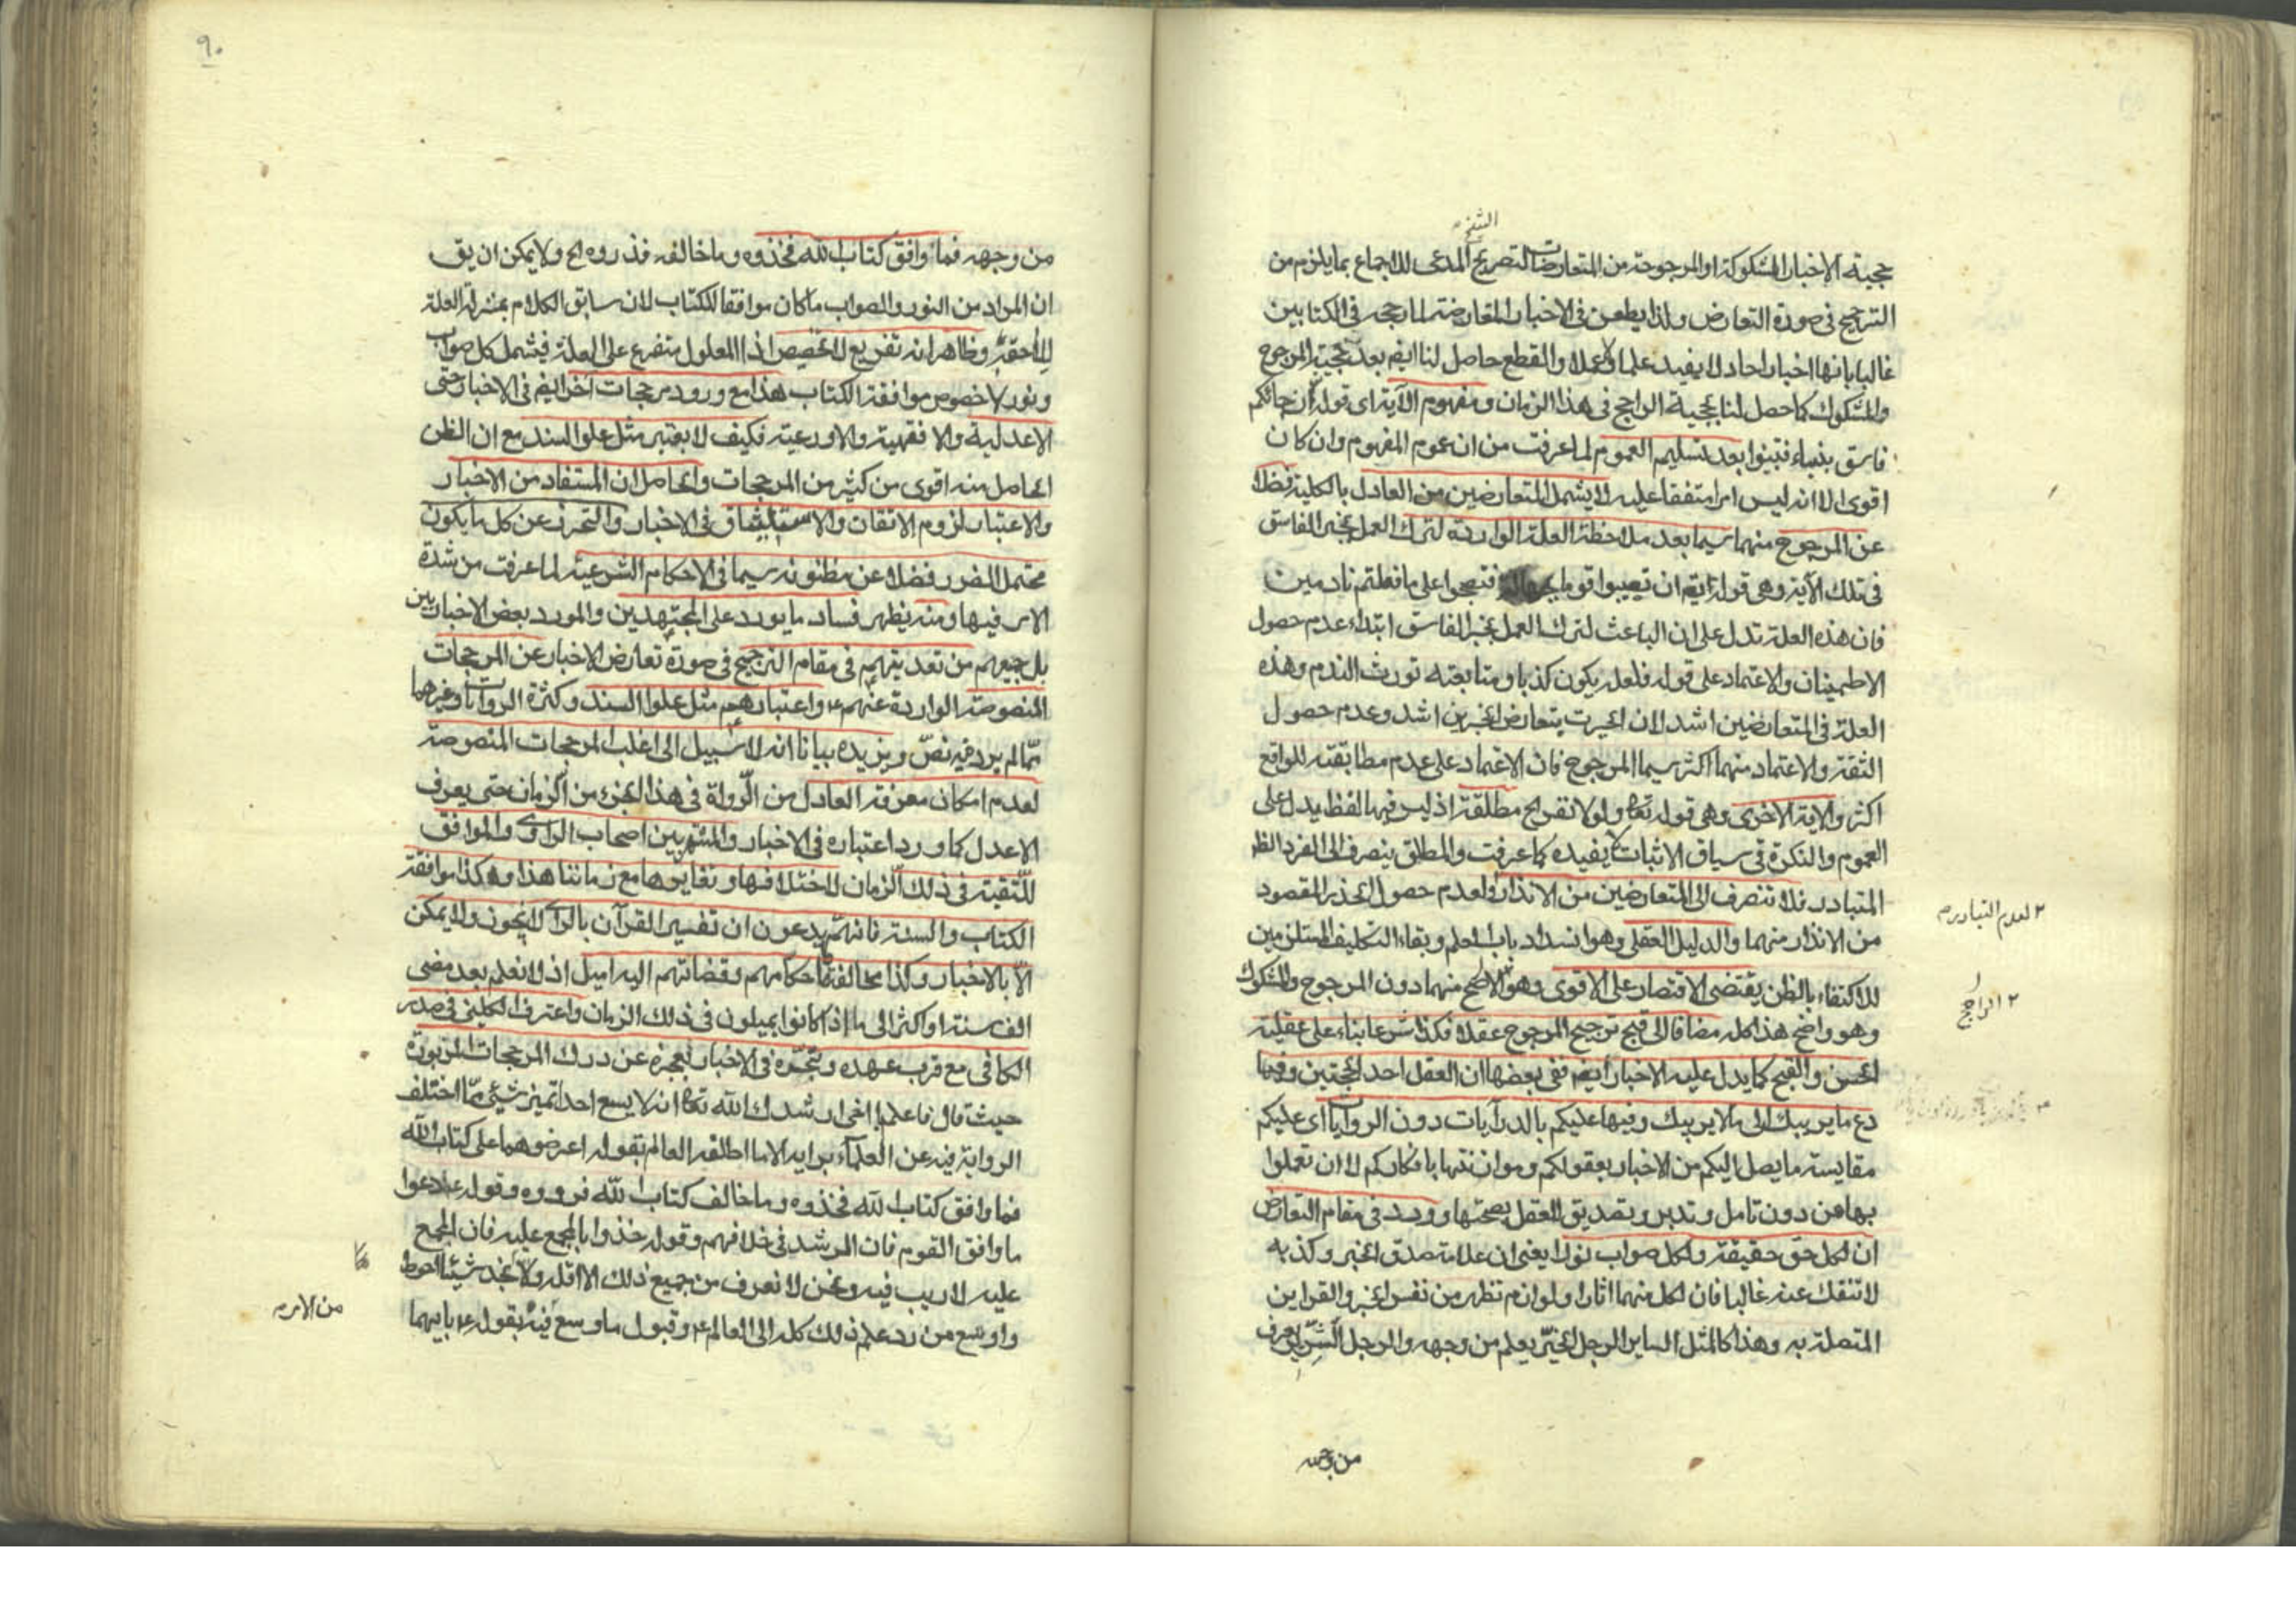 الشيخ
حجية الاخبار المشكوكة او المرجوحة من المتعارضات لتصريح المدعى للاجماع بما يلزم من
الترجيح فى صورة التعارض ولذا يطعن فى الاخبار المتعارضة لما رجحه فى الكتابين
غالبا بانها اخبار احاد لا يفيد علما ولا عملا والقطع حاصل لنا ايضم بعد حجية المرجوح
والمشكوك كما حصل لنا بحجية الراجح فى هذا الزمان ومفهوم الآية اى قوله ان جائكم
فاسق بنباء فتبينوا بعد تسليم العموم لما عرفت من ان عموم المفهوم وان كان
اقوى الا انه ليس امرا متفقا عليه لا يشمل المتعارضين من العادل بالكلية فضلا
عن المرجوح منهما سيما بعد ملاحظة العلة الواردة لترك العمل بخبر الفاسق
فى تلك الآية وهى قوله تعم ان تصيبوا قوما بجهالة فتصبحوا على ما فعلتم نادمين
فان هذه العلة تدل على ان الباعث لترك العمل بخبر الفاسق ابتداء عدم حصول
الاطمينان والاعتماد على قوله فلعله يكون كذبا ومتابعته تورث الندم وهذه
العلة فى المتعارضين اشد لان الحيرت بتعارض الخبرين اشد وعدم حصول
الثقة والاعتماد منهما اكثر سيما المرجوح فان الاعتماد على عدم مطابقته للواقع
اكثر والاية الاخرى وهى قوله تعا ولولا نفر الح مطلقة اذ ليس فيها لفظ يدل على
العموم والنكرة فى سياق الاثبات لا يفيده كما عرفت والمطلق ينصرف الى الفرد الظ
المتبادر فلا تنصرف الى المتعارضين من الانذار ولعدم حصول الحذر المقصود
٢ لعدم التبادر م
من الانذار منهما والدليل العقلى وهو انسداد باب العلم وبقاء التكليف المستلزمين
للاكتفاء بالظن يقتضى الاقتصار على الاقوى وهو الاصح منهما دون المرجوح والمشكوك
٢ الراجح
وهو واضح هذا كله مضافا الى قبح ترجيح المرجوح عقلا فكذا شرعا بناء على عقلية
الحسن والقبح كما يدل عليه الاخبار ايضم ففى بعضها ان العقل احد الحجتين وفيها
دع ما يريبك الى ما لا يريبك وفيها عليكم بالدرآيات دون الروايات اى عليكم
مقايسة ما يصل اليكم من الاخبار بعقولكم وموازنتها بافكاركم لا ان تعملوا
بها من دون تامل وتدبر وتصديق للعقل بصحتها وورد فى مقام التعارض
ان لكل حق حقيقة ولكل صواب نورا يعنى ان علامة صدق الخبر وكذبه
لا تنفك عنه غالبا فان لكل منهما اثارا ولوازم تظهر من نفس الخبر والقراين
المتصلة به وهذا كالمثل الساير الرجل الخيّر يعلم من وجهه والرجل الشرير يعرف
من وجهه
٩٠
من وجهه فما وافق كتاب الله فخذوه وما خالفه فذروه الح ولا يمكن ان يق
ان المراد من النور والصواب ما كان موافقا للكتاب لان سابق الكلام بمنزلة العلة
للاحقه وظاهر انه تفريع لا تخصيص اذ المعلول متفرع على العلة فيشمل كل صواب
ونور لا خصوص موافقة الكتاب هذا مع ورود مرجحات اخر ايضم فى الاخبار حتى
الاعدلية والافقهية والاورعية فكيف لا يعتبر مثل علو السند مع ان الظن
الحاصل منه اقوى من كثير من المرجحات والحاصل ان المستفاد من الاخبار
والاعتبار لزوم الاتقان والاستيثاق فى الاخبار والتحرز عن كل ما يكون
محتمل الضرر فضلا عن مظنونه سيما فى الاحكام الشرعية لما عرفت من شدة
الامر فيها ومنه يظهر فساد ما يورد على المجتهدين والمورد بعض الاخباريين
بل جميعهم من تعديتهم فى مقام الترجيح فى صورة تعارض الاخبار عن المرجحات
المنصوصة الواردة عنهم ع واعتبارهم مثل علو السند وكثرة الروات وغيرهما
ممّا لم يرد فيه نصّ ويزيده بيانا انه لا سبيل الى اغلب المرجحات المنصوصة
لعدم امكان معرفة العادل من الرواة فى هذا الجزء من الزمان حتى يعرف
الاعدل كما ورد اعتباره فى الاخبار والمشتهر بين اصحاب الراوى والموافق
للتّقية فى ذلك الزمان لاختلافها وتغايرها مع زماننا هذا وهكذا موافقة
الكتاب والسنة فانهم يدعون ان تفسير القرآن بالراى لا يجوز ولا يمكن
الّا بالاخبار وكذا مخالفة ما حكامهم وقضاتهم اليه اميل اذ لا نعلم بعد مضى
الف سنة او اكثر الى ما اذا كانوا يميلون فى ذلك الزمان واعترف الكلينى فى صدر
الكافى مع قرب عهده وتبحّره فى الاخبار بعجزه عن درك المرجحات المزبورة
حيث قال فاعلم يا اخى ارشدك الله تعا انه لا يسع احدا تميز شيئ ممّا اختلف
الرواية فيه عن العلمآء برايه الا ما اطلقه العالم بقوله اعرضوهما على كتاب الله
فما وافق كتاب الله فخذوه وما خالف كتاب الله فردوه وقوله ع دعوا
ما وافق القوم فان الرشد فى خلافهم وقوله خذوا بالمجمع عليه فان المجمع
عليه لا ريب فيه ونحن لا نعرف من جميع ذلك الا اقله ولا نجد شيئا احوط
واوسع من رد علم ذلك كله الى العالم ع وقبول ما وسع فيه بقوله ع بايهما
من الامر م